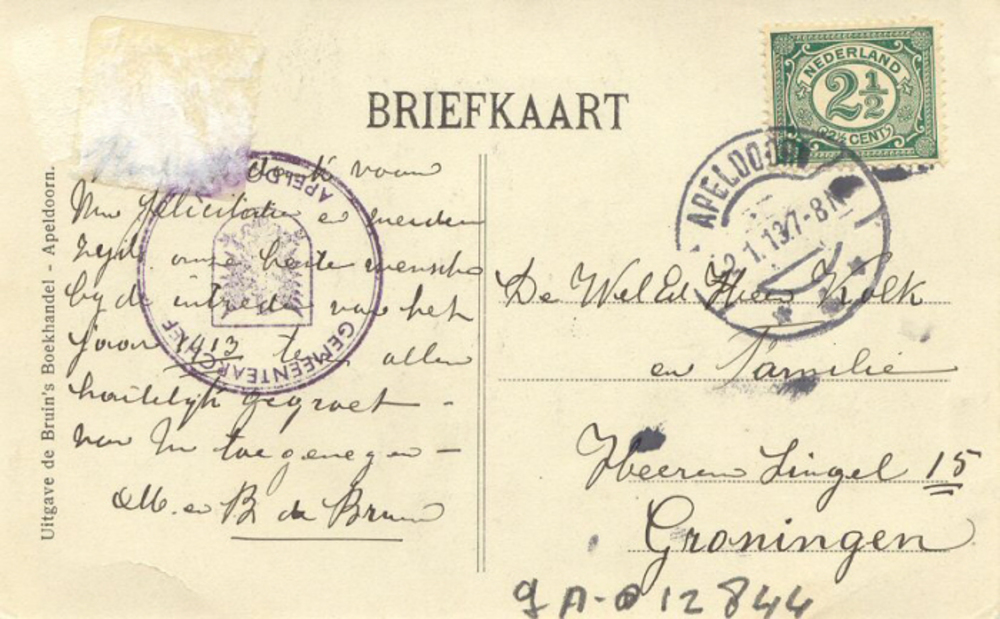 BRIEFKAART
NEDERLAND
2½
(2½ CENT)
APELDOORN
2.1.13 7-8N
GEMEENTEARCHIEF
APELDOORN
Uitgave de Bruin's Boekhandel - Apeldoorn.
dank voor
Uw felicitatie en
zijds onze beste wensche
bij de intrede van het
jaar 1913 te allen
hartelijk gegroet -
van Uw toegenegen -
M. en B de Bruin
De Wel Ed Heer Kolk
en Familie
Heeren Singel 15
Groningen
GA-012844